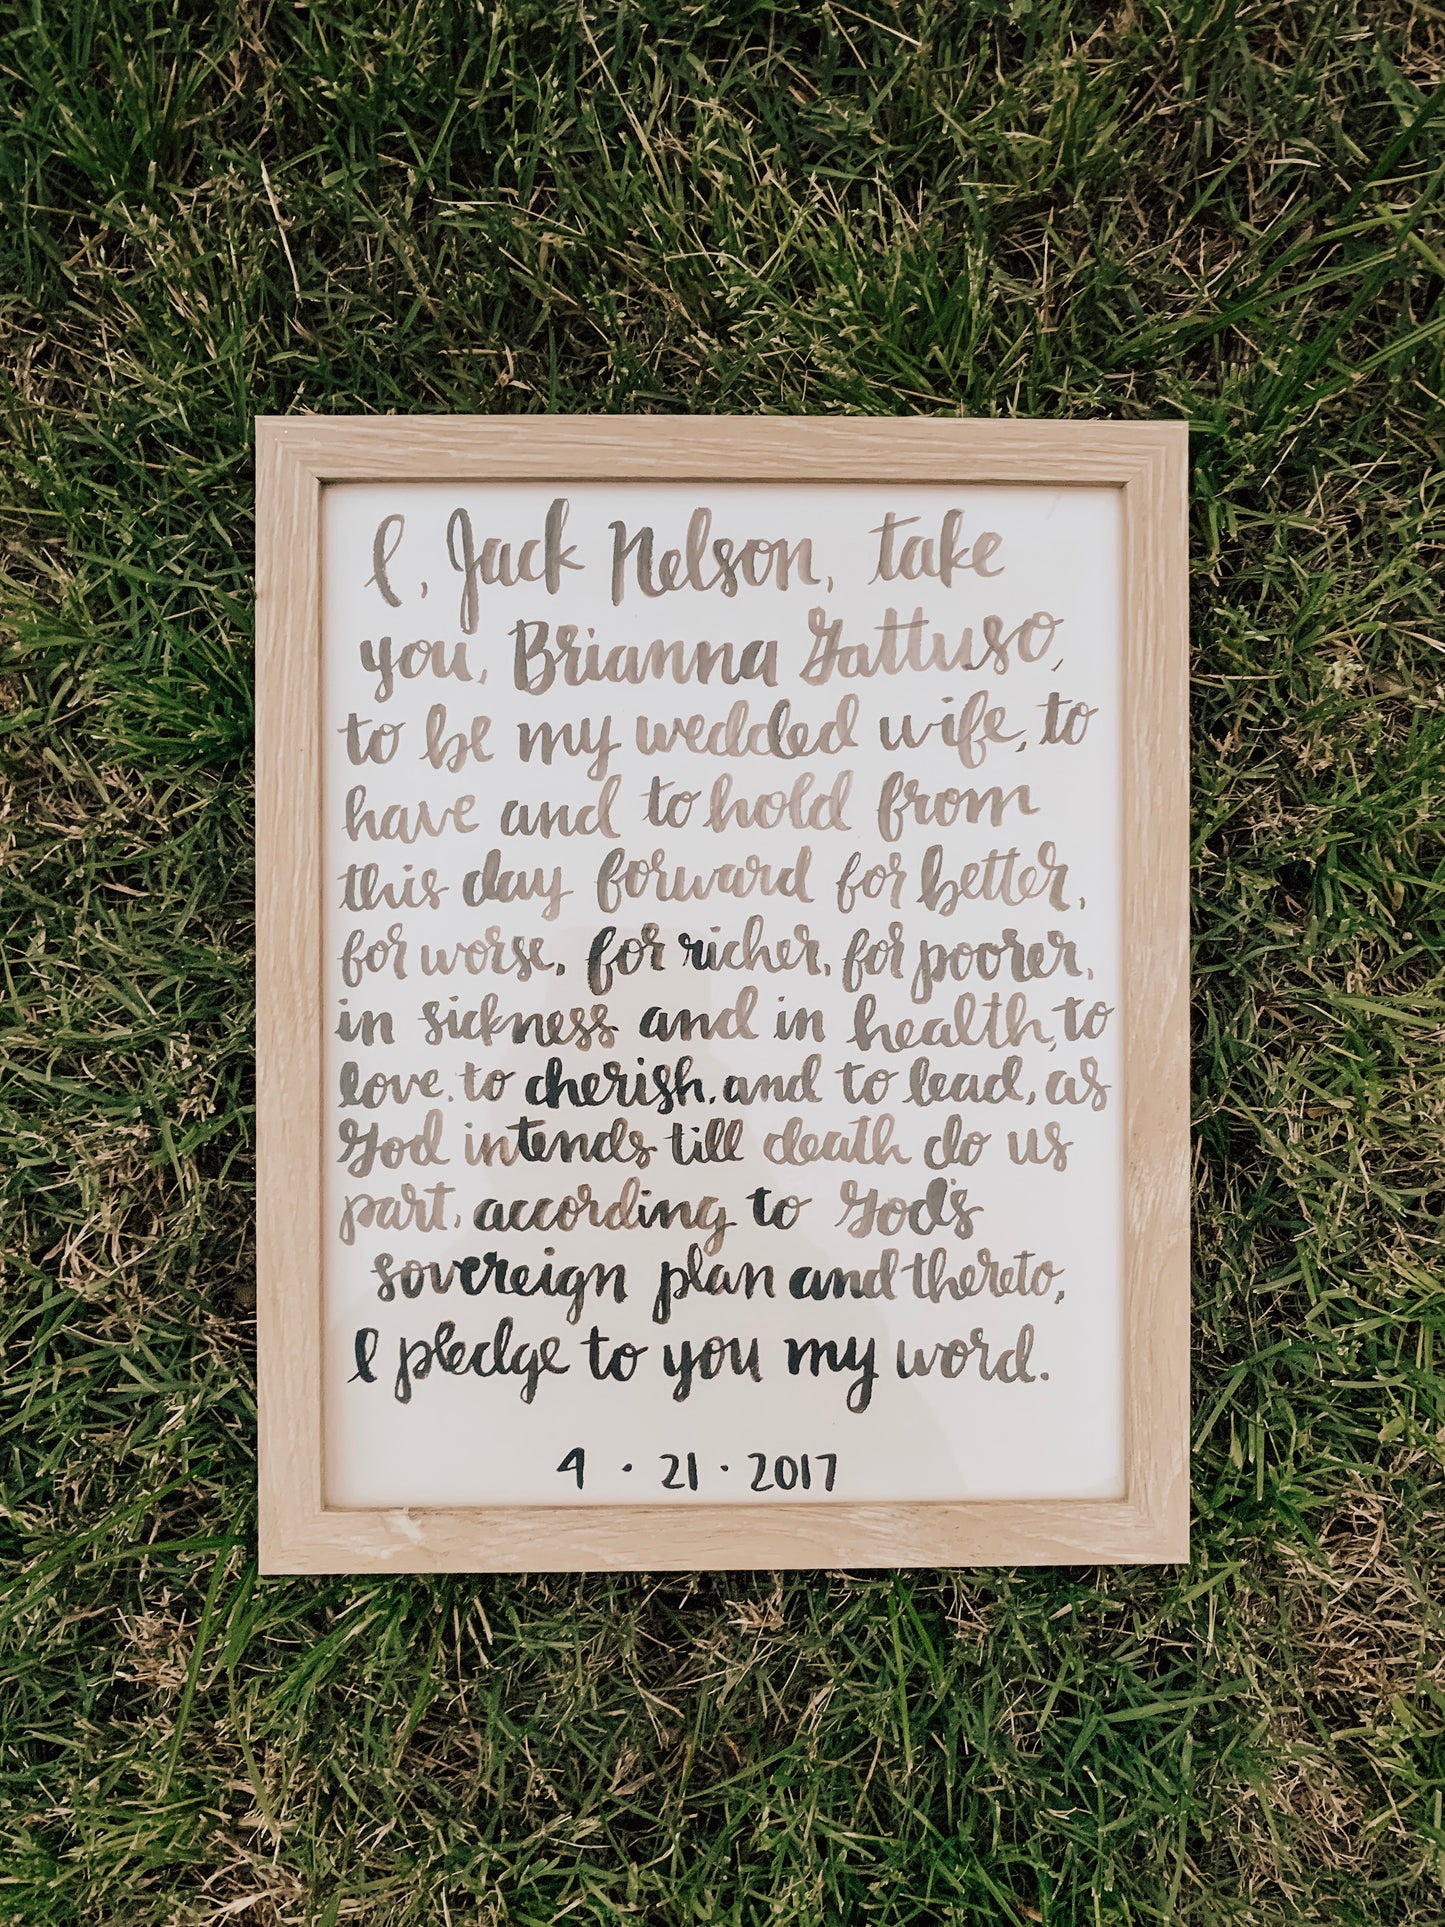 I, Jack Nelson, take
you, Brianna Gattuso,
to be my wedded wife, to
have and to hold from
this day forward for better,
for worse, for richer, for poorer,
in sickness and in health, to
love, to cherish, and to lead, as
God intends till death do us
part, according to God's
sovereign plan and thereto,
I pledge to you my word.
4 · 21 · 2017